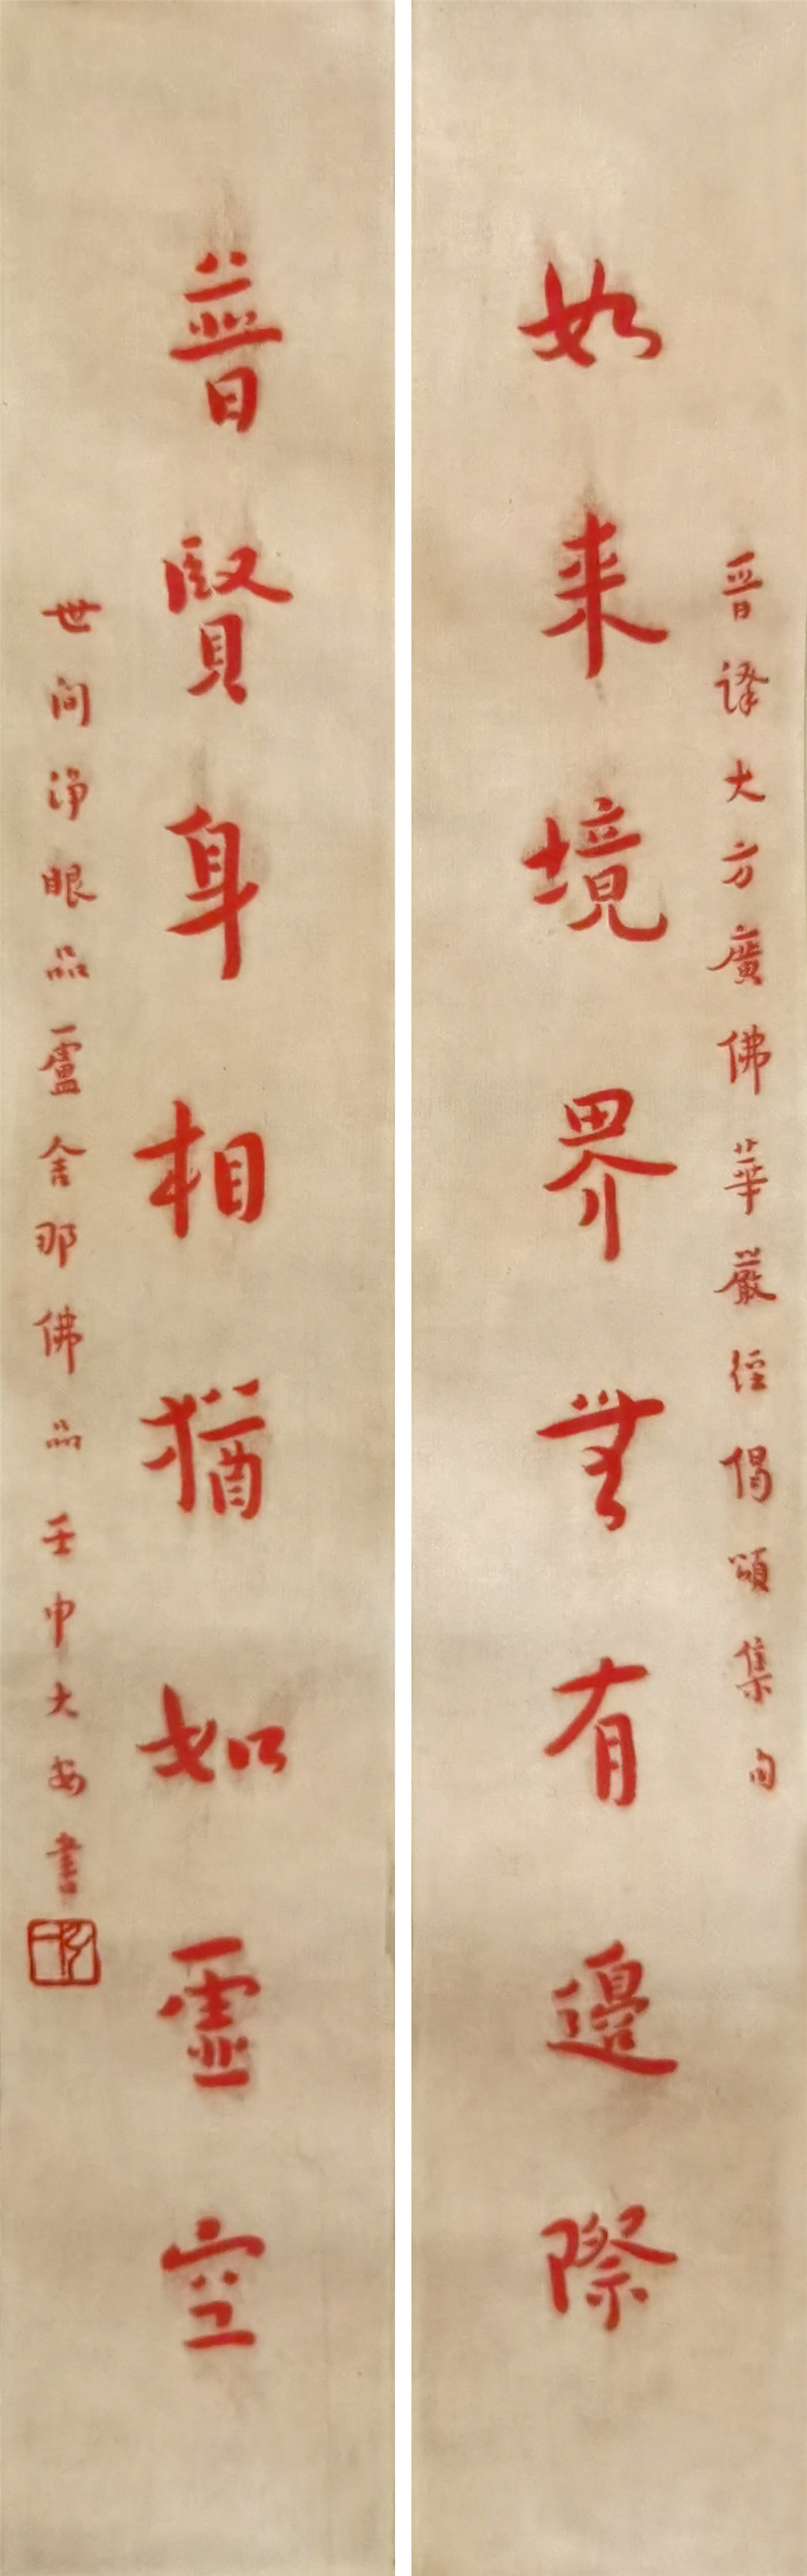 晉譯大方廣佛華嚴經偈頌集句
如来境界無有邊際
普賢身相猶如虛空
世间淨眼品盧舍那佛品壬申大安書